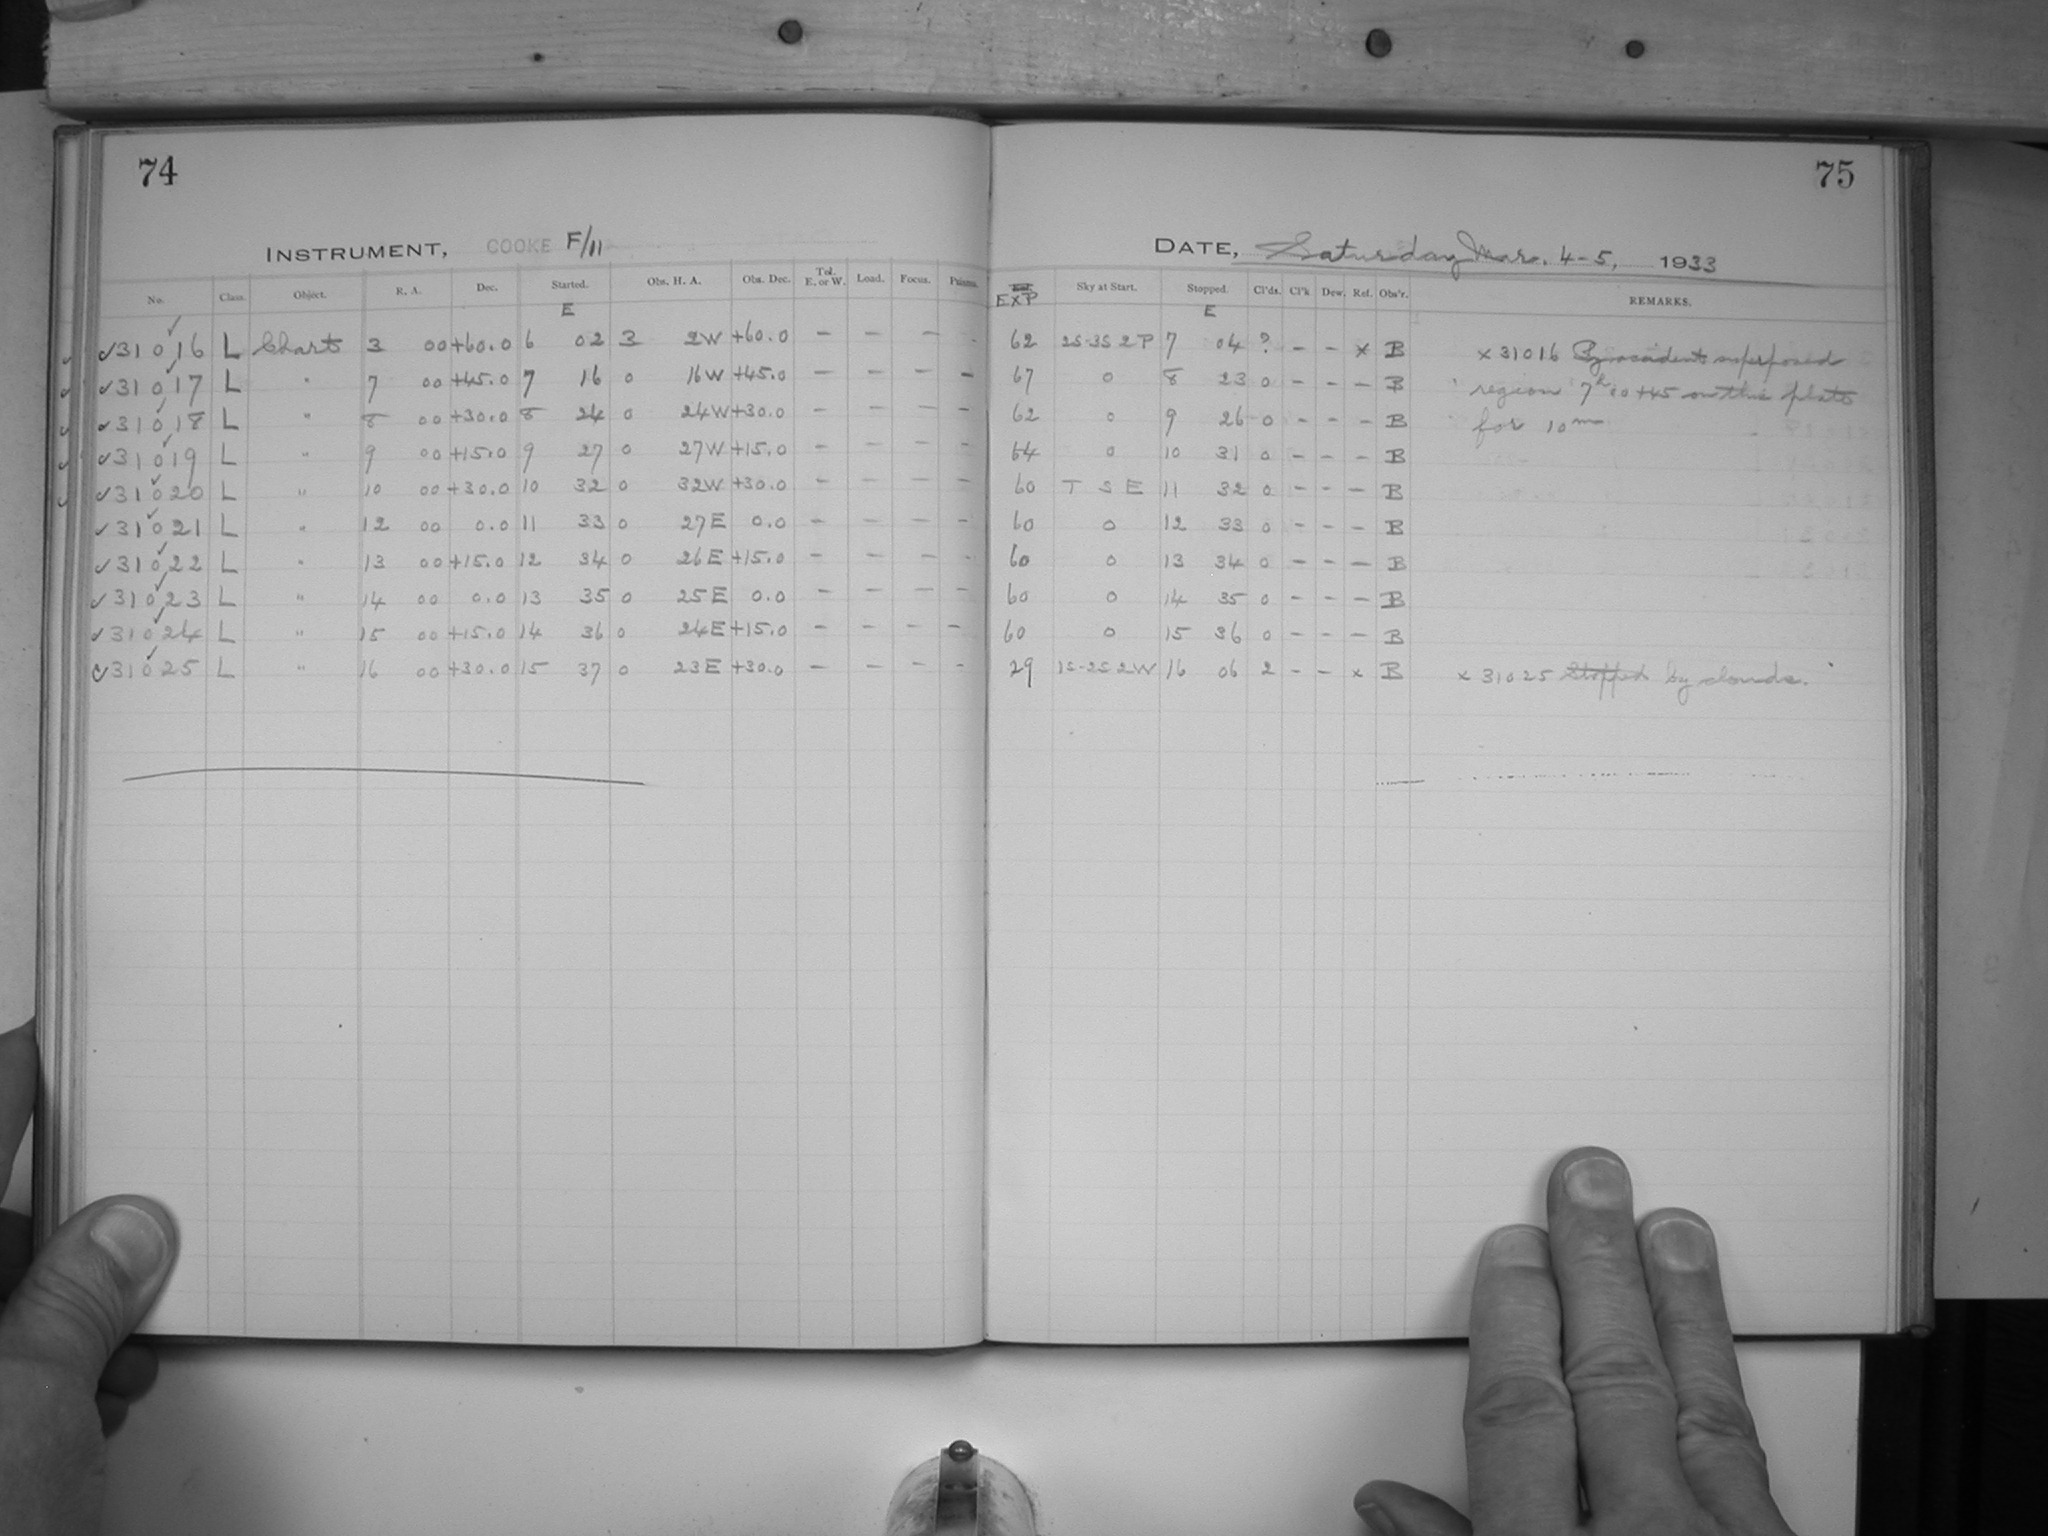 74
75
INSTRUMENT, COOKE F/11
DATE, Saturday Mar. 4-5, 1933
No. Class. Object. R. A. Dec. Started. Obs. H. A. Obs. Dec. Tel. E. or W. Load. Focus. Prisms. EXP Sky at Start. Stopped. Cl'ds. Cl'k Dew. Ref. Obs'r. REMARKS.
E E
✓31016 L Charts 3 00 +60.0 6 02 3 2W +60.0 – – – - 62 2S-3S 2P 7 04 ? – – x B x 31016 By accident superposed
✓31017 L " 7 00 +45.0 7 16 0 16W +45.0 – – – – 67 0 8 23 0 – – – B region 7h 00 +45 on this plate
✓31018 L " 8 00 +30.0 8 24 0 24W +30.0 – – – – 62 0 9 26 0 – – – B for 10m
✓31019 L " 9 00 +15.0 9 27 0 27W +15.0 – – – – 64 0 10 31 0 – – – B
✓31020 L " 10 00 +30.0 10 32 0 32W +30.0 – – – – 60 T S E 11 32 0 – – – B
✓31021 L " 12 00 0.0 11 33 0 27E 0.0 – – – – 60 0 12 33 0 – – – B
✓31022 L " 13 00 +15.0 12 34 0 26E +15.0 – – – – 60 0 13 34 0 – – – B
✓31023 L " 14 00 0.0 13 35 0 25E 0.0 – – – – 60 0 14 35 0 – – – B
✓31024 L " 15 00 +15.0 14 36 0 24E +15.0 – – – – 60 0 15 36 0 – – – B
✓31025 L " 16 00 +30.0 15 37 0 23E +30.0 – – – – 29 1S-2S 2W 16 06 2 – – x B x 31025 Stopped by clouds.